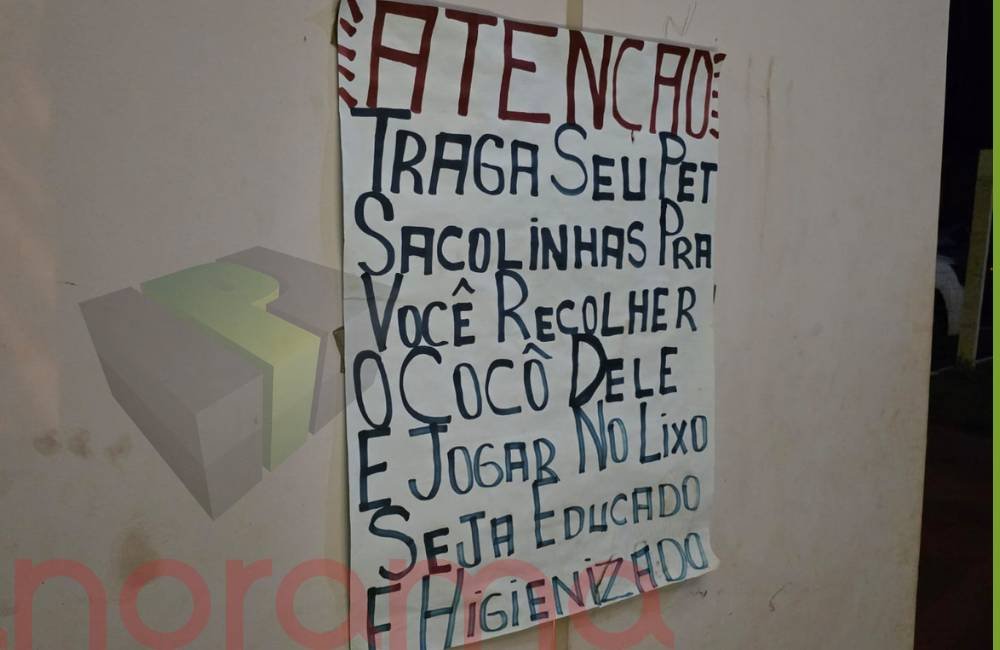 ATENÇÃO
TRAGA SEU PET
SACOLINHAS PRA
VOCÊ RECOLHER
O COCÔ DELE
E JOGAR NO LIXO
SEJA EDUCADO
E HIGIENIZADO
norama